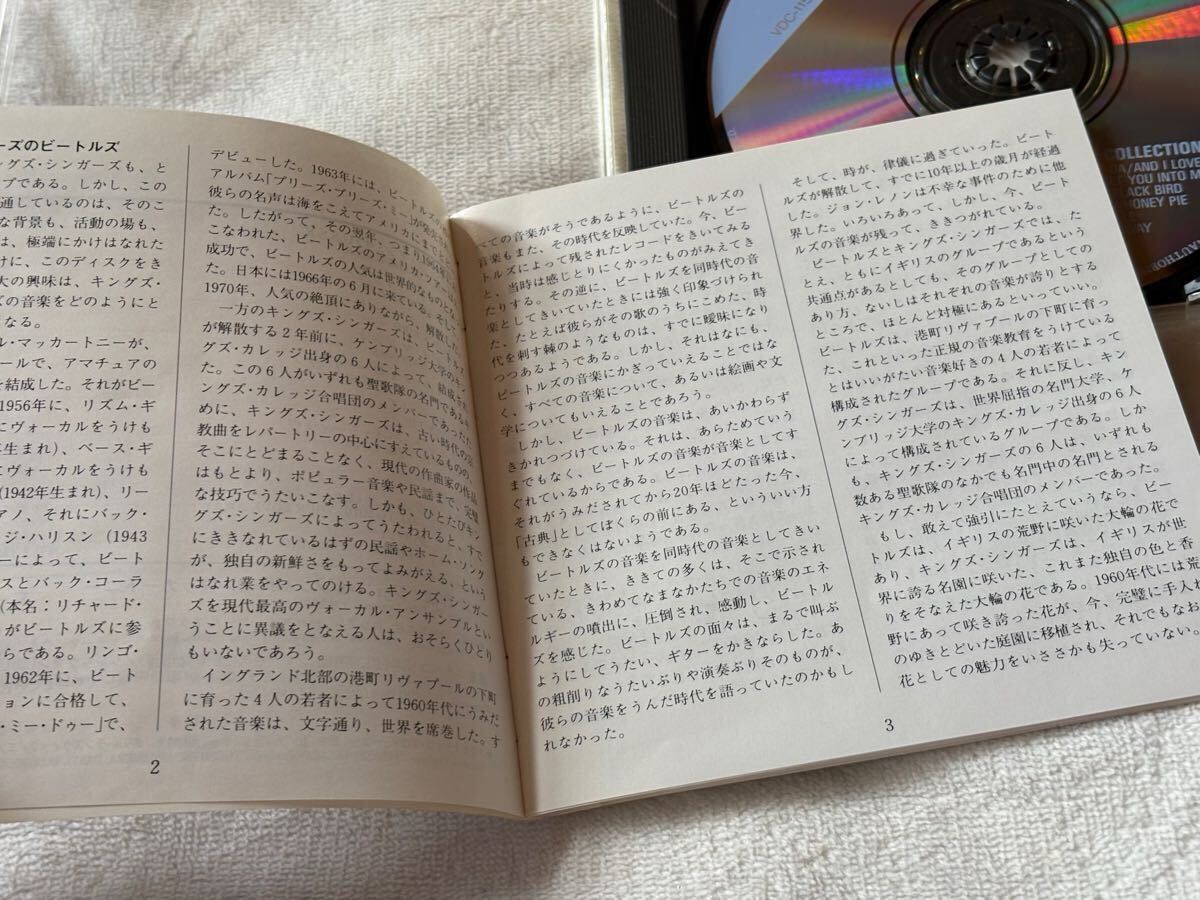 ーズのビートルズ
ングズ・シンガーズも、と
プである。しかし、この
通しているのは、そのこ
な背景も、活動の場も、
は、極端にかけはなれた
けに、このディスクをき
大の興味は、キングズ・
ズの音楽をどのようにと
なる。
ル・マッカートニーが、
ールで、アマチュアの
を結成した。それがビー
1956年に、リズム・ギ
にヴォーカルをうけも
年生まれ)、ベース・ギ
にヴォーカルをうけも
(1942年生まれ)、リー
アノ、それにバック・
ジ・ハリスン (1943
ーによって、ビート
スとバック・コーラ
(本名：リチャード・
がビートルズに参
らである。リンゴ・
1962年に、ビート
ションに合格して、
・ミー・ドゥー」で、
デビューした。1963年には、ビートルズの
アルバム「プリーズ・プリーズ・ミー」が発売され
彼らの名声は海をこえてアメリカにまでとど
た。したがって、その翌年、つまり1964年に
こなわれた、ビートルズのアメリカ・ツアーは
成功で、ビートルズの人気は世界的なものと
た。日本には1966年の6月に来ている。そして
1970年、人気の絶頂にありながら、解散した。
一方のキングズ・シンガーズは、ビートルズ
が解散する2年前に、ケンブリッジ大学のキン
グズ・カレッジ出身の6人によって、結成され
た。この6人がいずれも聖歌隊の名門であるキ
ングズ・カレッジ合唱団のメンバーであったた
めに、キングズ・シンガーズは、古い時代の宗
教曲をレパートリーの中心にすえているものの、
そこにとどまることなく、現代の作曲家の作品
はもとより、ポピュラー音楽や民謡まで、完璧
な技巧でうたいこなす。しかも、ひとたびキン
グズ・シンガーズによってうたわれると、すで
にききなれているはずの民謡やホーム・ソング
が、独自の新鮮さをもってよみがえる、という
はなれ業をやってのける。キングズ・シンガー
ズを現代最高のヴォーカル・アンサンブルとい
うことに異議をとなえる人は、おそらくひとり
もいないであろう。
イングランド北部の港町リヴァプールの下町
に育った4人の若者によって1960年代にうみだ
された音楽は、文字通り、世界を席巻した。す
2
べての音楽がそうであるように、ビートルズの
音楽もまた、その時代を反映していた。今、ビー
トルズによって残されたレコードをきいてみる
と、当時は感じとりにくかったものがみえてき
たりする。その逆に、ビートルズを同時代の音
楽としてきいていたときには強く印象づけられ
た、たとえば彼らがその歌のうちにこめた、時
代を刺す棘のようなものは、すでに曖昧になり
つつあるようである。しかし、それはなにも、
ビートルズの音楽にかぎっていえることではな
く、すべての音楽について、あるいは絵画や文
学についてもいえることであろう。
しかし、ビートルズの音楽は、あいかわらず
きかれつづけている。それは、あらためていう
までもなく、ビートルズの音楽が音楽としてす
ぐれているからである。ビートルズの音楽は、
それがうみだされてから20年ほどたった今、
「古典」としてぼくらの前にある、といういい方
もできなくはないようである。
ビートルズの音楽を同時代の音楽としてきい
ていたときに、ききての多くは、そこで示され
ている、きわめてなまなかたちでの音楽のエネ
ルギーの噴出に、圧倒され、感動し、ビートル
ズを感じた。ビートルズの面々は、まるで叫ぶ
ようにしてうたい、ギターをかきならした。あ
の粗削りなうたいぶりや演奏ぶりそのものが、
彼らの音楽をうんだ時代を語っていたのかもし
れなかった。
そして、時が、律儀に過ぎていった。ビート
ルズが解散して、すでに10年以上の歳月が経過
した。ジョン・レノンは不幸な事件のために他
界した。いろいろあって、しかし、今、ビート
ルズの音楽が残って、ききつがれている。
ビートルズとキングズ・シンガーズでは、た
とえ、ともにイギリスのグループであるという
共通点があるとしても、そのグループとしての
あり方、ないしはそれぞれの音楽が誇りとする
ところで、ほとんど対極にあるといっていい。
ビートルズは、港町リヴァプールの下町に育っ
た、これといった正規の音楽教育をうけている
とはいいがたい音楽好きの4人の若者によって
構成されたグループである。それに反し、キン
グズ・シンガーズは、世界屈指の名門大学、ケ
ンブリッジ大学のキングズ・カレッジ出身の6人
によって構成されているグループである。しか
も、キングズ・シンガーズの6人は、いずれも
数ある聖歌隊のなかでも名門中の名門とされる
キングズ・カレッジ合唱団のメンバーであった。
もし、敢えて強引にたとえていうなら、ビー
トルズは、イギリスの荒野に咲いた大輪の花で
あり、キングズ・シンガーズは、イギリスが世
界に誇る名園に咲いた、これまた独自の色と香
りをそなえた大輪の花である。1960年代には荒
野にあって咲き誇った花が、今、完璧に手入れ
のゆきとどいた庭園に移植され、それでもなお
花としての魅力をいささかも失っていない。
3
VDC-115
COLLECTION
A/AND I LOVE
YOU INTO M
ACK BIRD
HONEY PIE
AY
AUTHOR